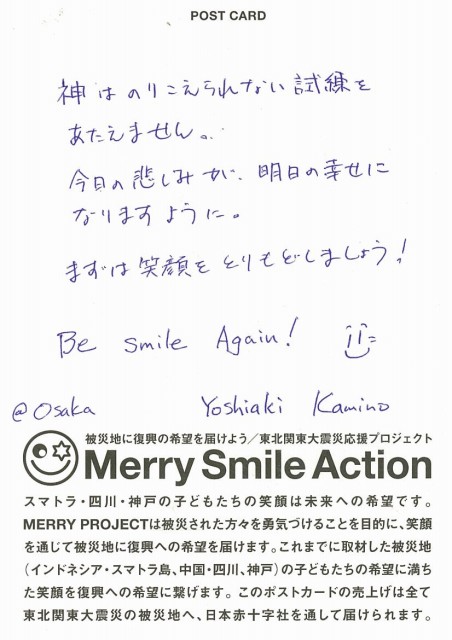 POST CARD
神はのりこえられない試練を
あたえません。
今日の悲しみが、明日の幸せに
なりますように。
まずは笑顔をとりもどしましょう!
Be smile Again!
@Osaka Yoshiaki Kamino
被災地に復興の希望を届けよう/東北関東大震災応援プロジェクト
Merry Smile Action
スマトラ・四川・神戸の子どもたちの笑顔は未来への希望です。
MERRY PROJECTは被災された方々を勇気づけることを目的に、笑顔
を通じて被災地に復興への希望を届けます。これまでに取材した被災地
(インドネシア・スマトラ島、中国・四川、神戸)の子どもたちの希望に満ち
た笑顔を復興への希望に繋げます。このポストカードの売上げは全て
東北関東大震災の被災地へ、日本赤十字社を通して届けられます。